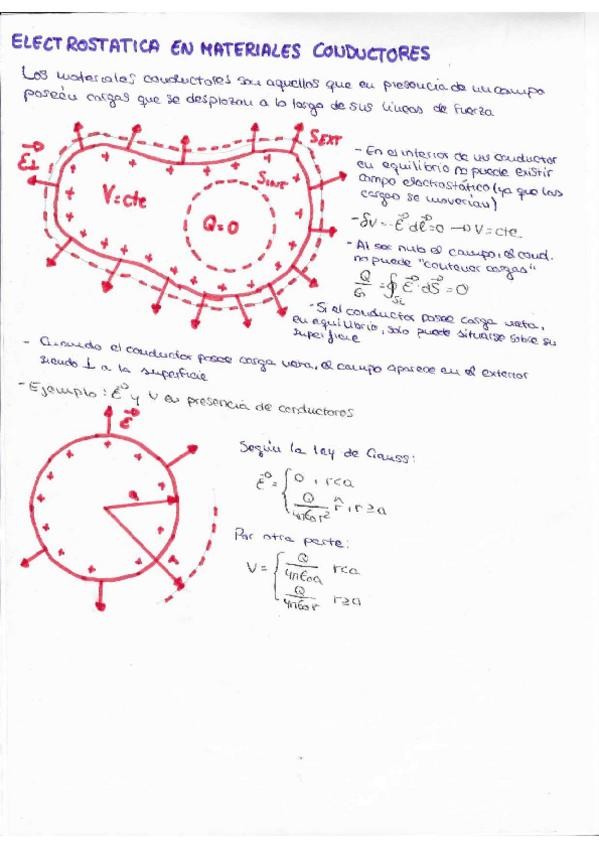 ELECTROSTATICA EN MATERIALES CONDUCTORES
Los materiales conductores son aquellos que en presencia de un campo
poseen cargas que se desplazan a lo largo de sus líneas de fuerza
E⃗⊥
SEXT
SINT
V=cte
Q=0
- En el interior de un conductor
en equilibrio no puede existir
campo electrostático (ya que las
cargas se moverían)
-dV=-E⃗ dl⃗=0 → V=cte.
- Al ser nulo el campo, el cond.
no puede "contener cargas"
Q/ε₀ = ∮Si E⃗·dS⃗ = 0
- Si el conductor posee carga neta,
en equilibrio, solo puede situarse sobre su
superficie
- Cuando el conductor posee carga neta, el campo aparece en el exterior
siendo ⊥ a la superficie
- Ejemplo: E⃗ y V en presencia de conductores
E⃗
a
r
Según la ley de Gauss:
E⃗ = { 0, r<a
Q/4πε₀r² r̂, r≥a
Por otra parte:
V = { Q/4πε₀a r<a
Q/4πε₀r r≥a